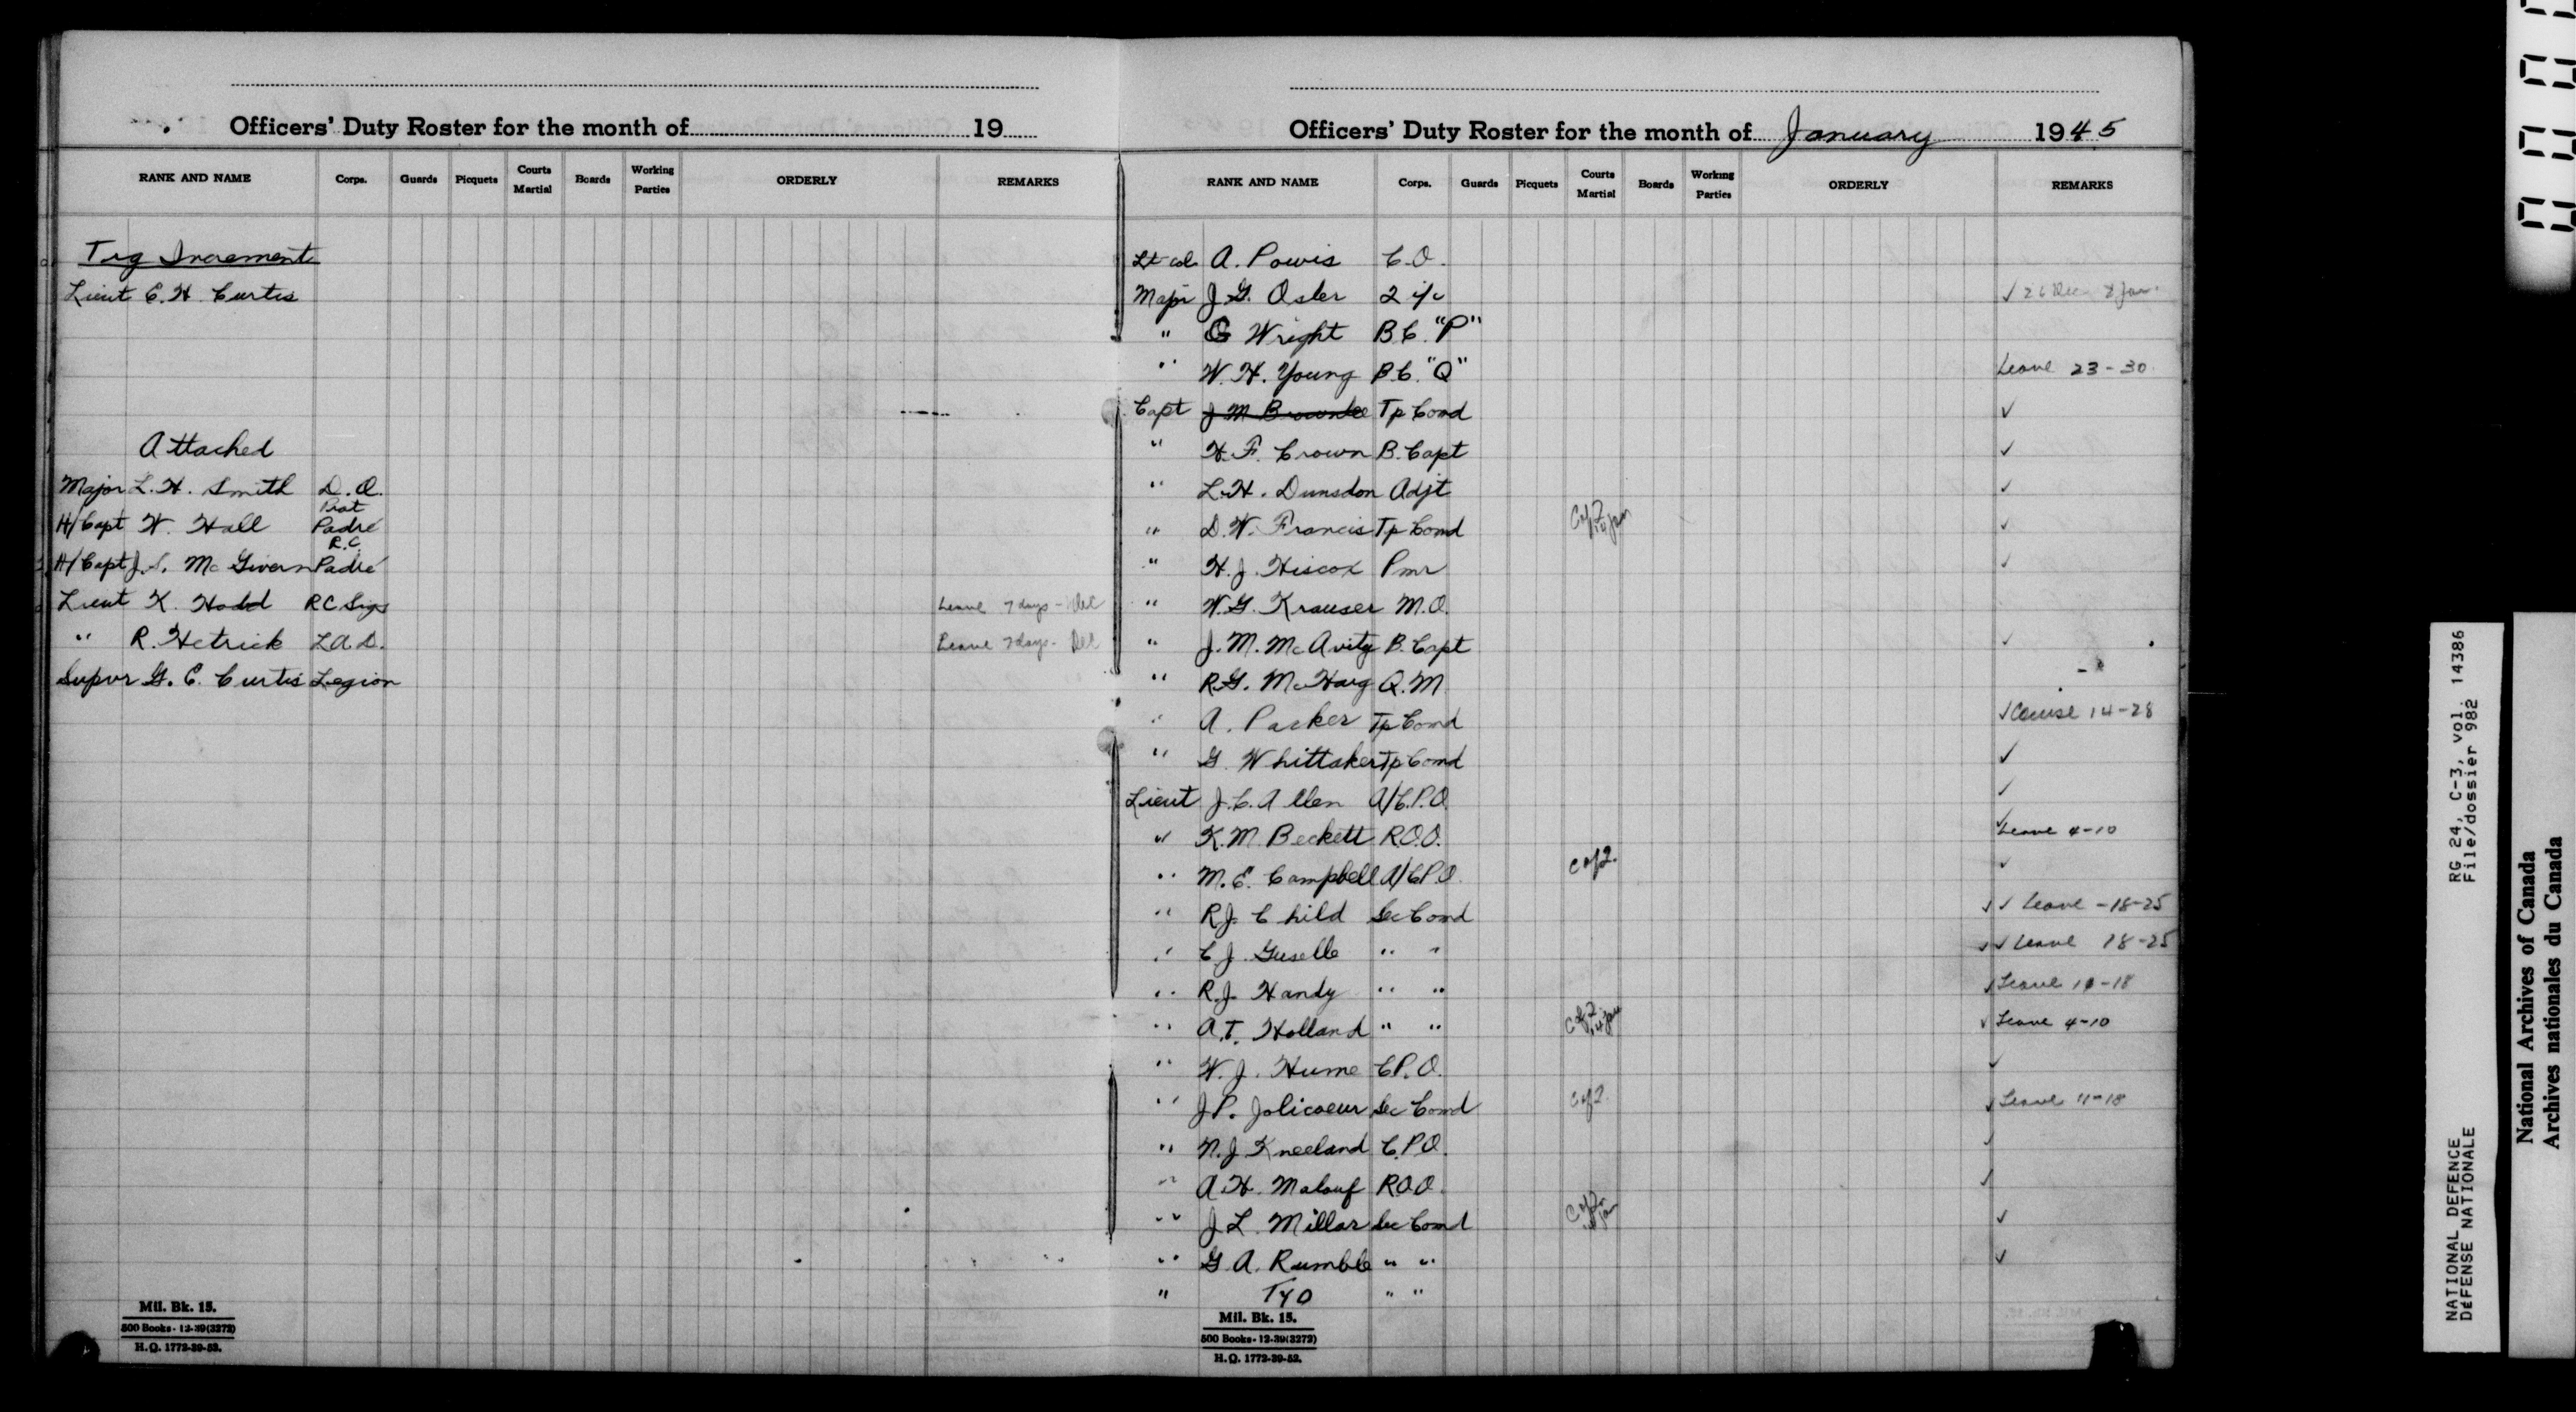 Officers' Duty Roster for the month of 19
RANK AND NAME Corps. Guards Picquets Courts Martial Boards Working Parties ORDERLY REMARKS
Trg Increment
Lieut C. H. Curtis
Attached
Major L. H. Smith D.O.
H/Capt W. Hall Prot Padre
H/Capt J. S. McGivern R.C. Padre
Lieut K. Hodd RC Sigs Leave 7 days - Dec
" R. Hetrick L.A.D. Leave 7 days - Dec
Supvr G. E. Curtis Legion
Mil. Bk. 15.
500 Books - 12-39 (3272)
H.Q. 1772-39-52.
Officers' Duty Roster for the month of January 1945
RANK AND NAME Corps. Guards Picquets Courts Martial Boards Working Parties ORDERLY REMARKS
Lt col A. Powis C.O.
Major J G. Osler 2 i/c ✓ 26 Dec 2 Jan
" G Wright B.C. "P"
" W. H. Young B.C. "Q" Leave 23-30
Capt J M Brownlee Tp Comd ✓
" H. F. Crown B. Capt ✓
" L.H. Dunsdon Adjt ✓
" D. W. Francis Tp Comd C of 2 Jan ✓
" H. J. Hiscox Pmr ✓
" W. G. Krauser M.O.
" J. M. McAvity B. Capt ✓
" R.G. McHarg Q.M.
" A. Parker Tp Comd ✓ Course 14-28
" G. Whittaker Tp Comd ✓
Lieut J. C. Allen A/C.P.O. ✓
" K. M. Beckett R.O.O. ✓ Leave 4-10
" M. E. Campbell A/C.P.O. C of 2. ✓
" R J. Child Sec Comd ✓ ✓ Leave - 18-25
" C J. Guselle " " ✓ ✓ Leave 18-25
" R. J. Handy " " ✓ Leave 11-18
" A. T. Holland " " C of 2 14 Jan ✓ Leave 4-10
" W. J. Hume C.P.O. ✓
" J P. Jolicoeur Sec Comd C of 2. ✓ Leave 11-18
" N. J Kneeland C.P.O. ✓
" A. H. Malouf R.O.O. ✓
" J L. Millar Sec Comd C of 2 Jan ✓
" G A. Rumble " " ✓
" Tyo " "
Mil. Bk. 15.
500 Books - 12-39 (3272)
H.Q. 1772-39-52.
NATIONAL DEFENCE RG 24, C-3, vol. 14386
DEFENSE NATIONALE File/dossier 982
National Archives of Canada
Archives nationales du Canada